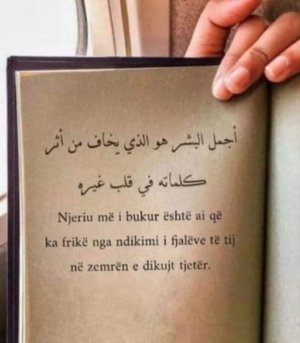 أجمل البشر هو الذي يخاف من أثر
كلماته في قلب غيره
Njeriu më i bukur është ai që
ka frikë nga ndikimi i fjalëve të tij
në zemrën e dikujt tjetër.